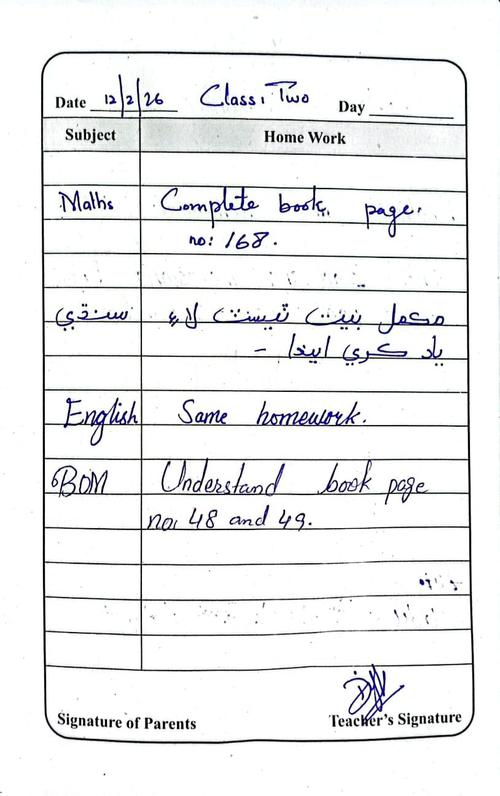 Date 12/2/26 Class: Two Day
Subject Home Work
Maths Complete book page.
no: 168.
سنڌي مڪمل بيت ٽيسٽ لاءِ
ياد ڪري ايندا -
English Same homework.
BOM Understand book page
no: 48 and 49.
Signature of Parents Teacher's Signature